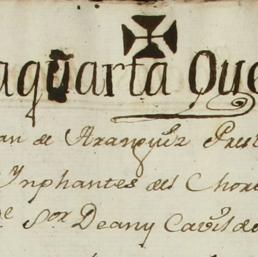 aquarta Que
an de Aranguez Pres
Ynphantes del Choro
Sor Dean y Cavildo